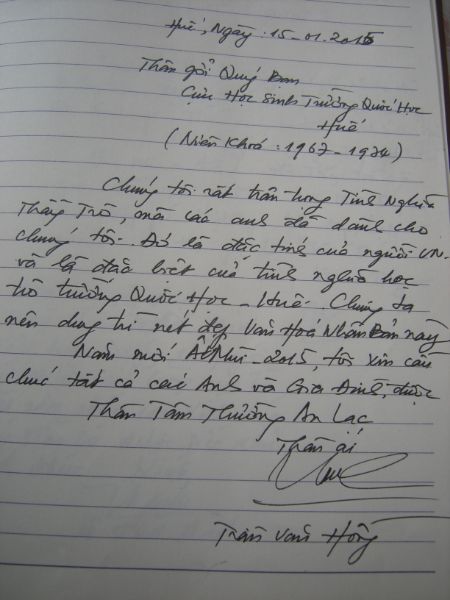 Huế, Ngày : 15-01-2015
Thân gởi Quý Bạn
Cựu Học Sinh Trường Quốc Học
Huế
( Niên Khoá : 1967 - 1974 )
Chúng tôi rất trân trọng Tình Nghĩa
Thầy Trò, mà các anh đã dành cho
chúng tôi. Đó là đức tính của người VN.
và là đặc biệt của tình nghĩa học
trò trường Quốc Học - Huế. Chúng ta
nên duy trì nét đẹp Văn Hoá Nhân Bản này
Năm mới Ất Mùi - 2015, tôi xin cầu
chúc tất cả các Anh và Gia Đình, được
Thân Tâm Thường An Lạc
Thân ái
Trần Văn Hồng